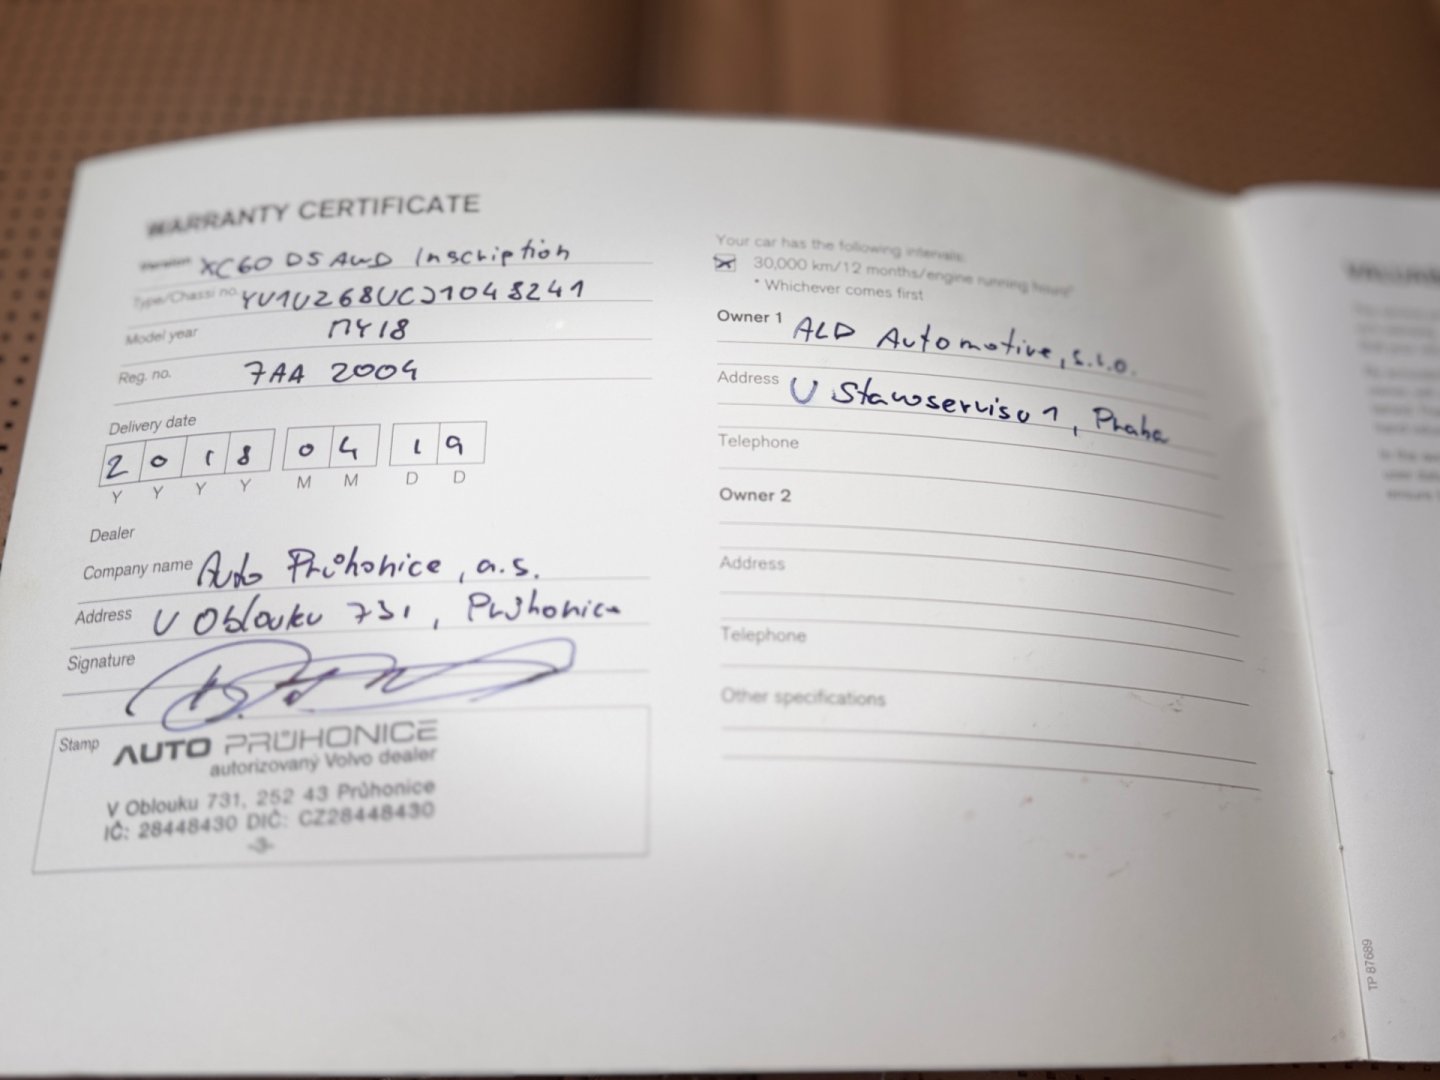 WARRANTY CERTIFICATE
Version XC60 D5 AWD Inscription
Type/Chassi no. YV1UZ68UCJ1048241
Model year MY18
Reg. no. 7AA 2004
Delivery date
2 0 1 8 0 4 1 9
Y Y Y Y M M D D
Dealer
Company name Auto Průhonice, a.s.
Address V Oblouku 731, Průhonice
Signature
Stamp AUTO PRŮHONICE
autorizovaný Volvo dealer
V Oblouku 731, 252 43 Průhonice
IČ: 28448430 DIČ: CZ28448430
-3-
Your car has the following intervals:
30,000 km/12 months/engine running hours*
* Whichever comes first
Owner 1 ALD Automotive, s.r.o.
Address U Stavoservisu 1, Praha
Telephone
Owner 2
Address
Telephone
Other specifications
TP 87689